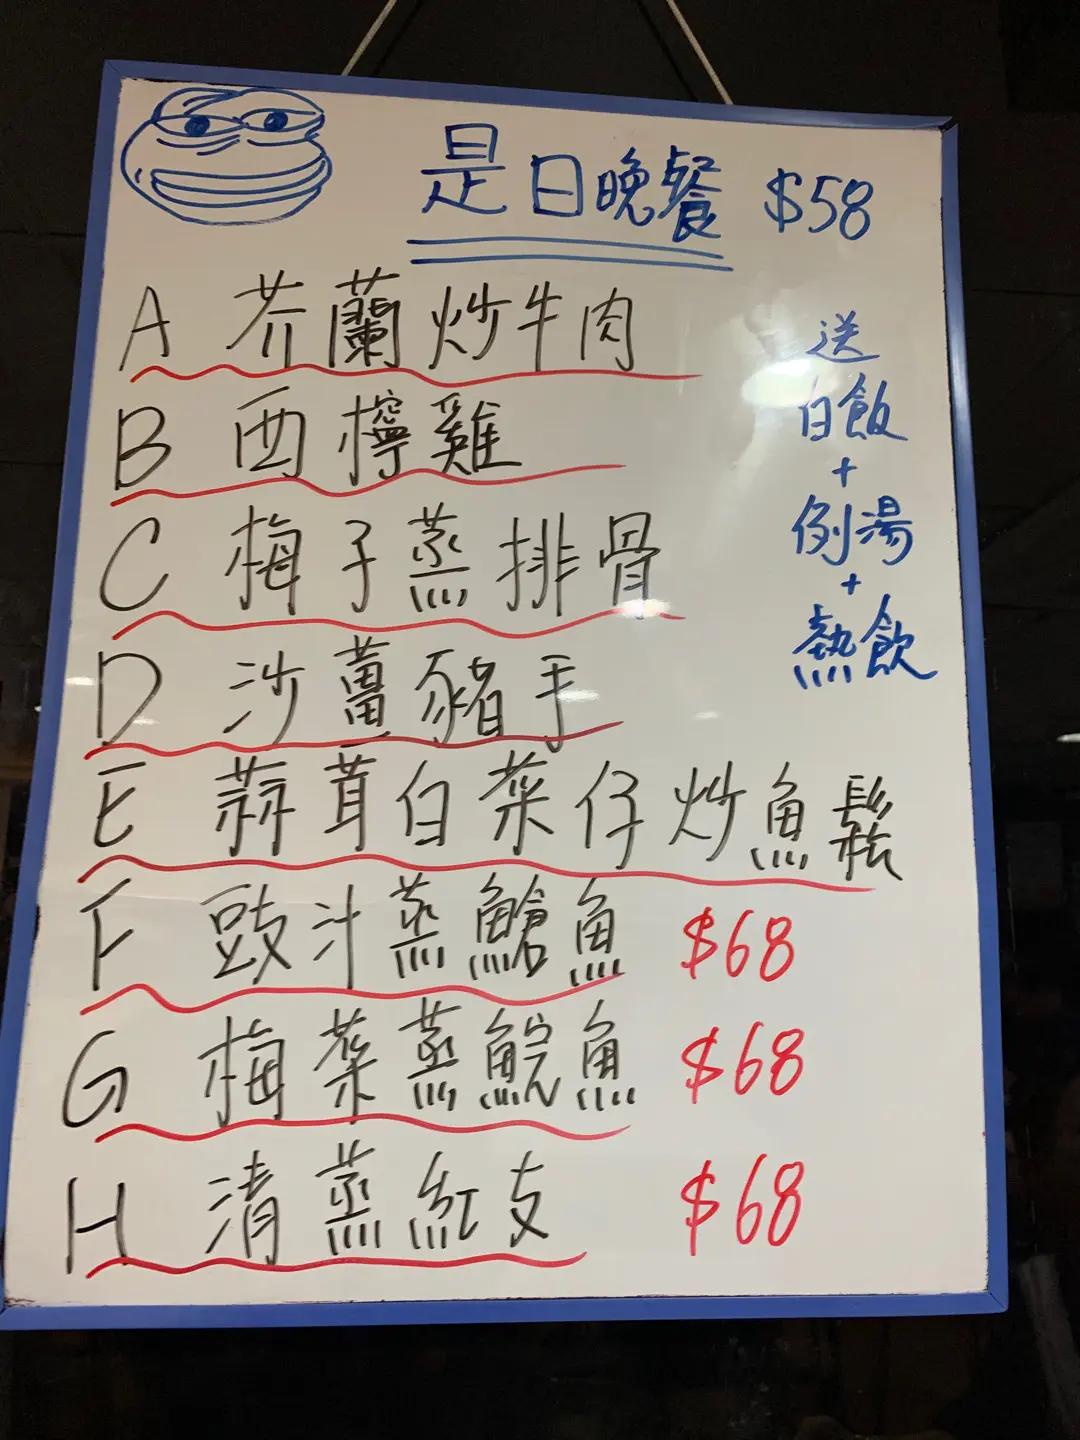 是日晚餐 $58
A 芥蘭炒牛肉
B 西檸雞
C 梅子蒸排骨
D 沙薑豬手
E 蒜茸白菜仔炒魚鬆
F 豉汁蒸鱠魚 $68
G 梅菜蒸鯇魚 $68
H 清蒸紅支 $68
送
白飯
+
例湯
+
熱飲